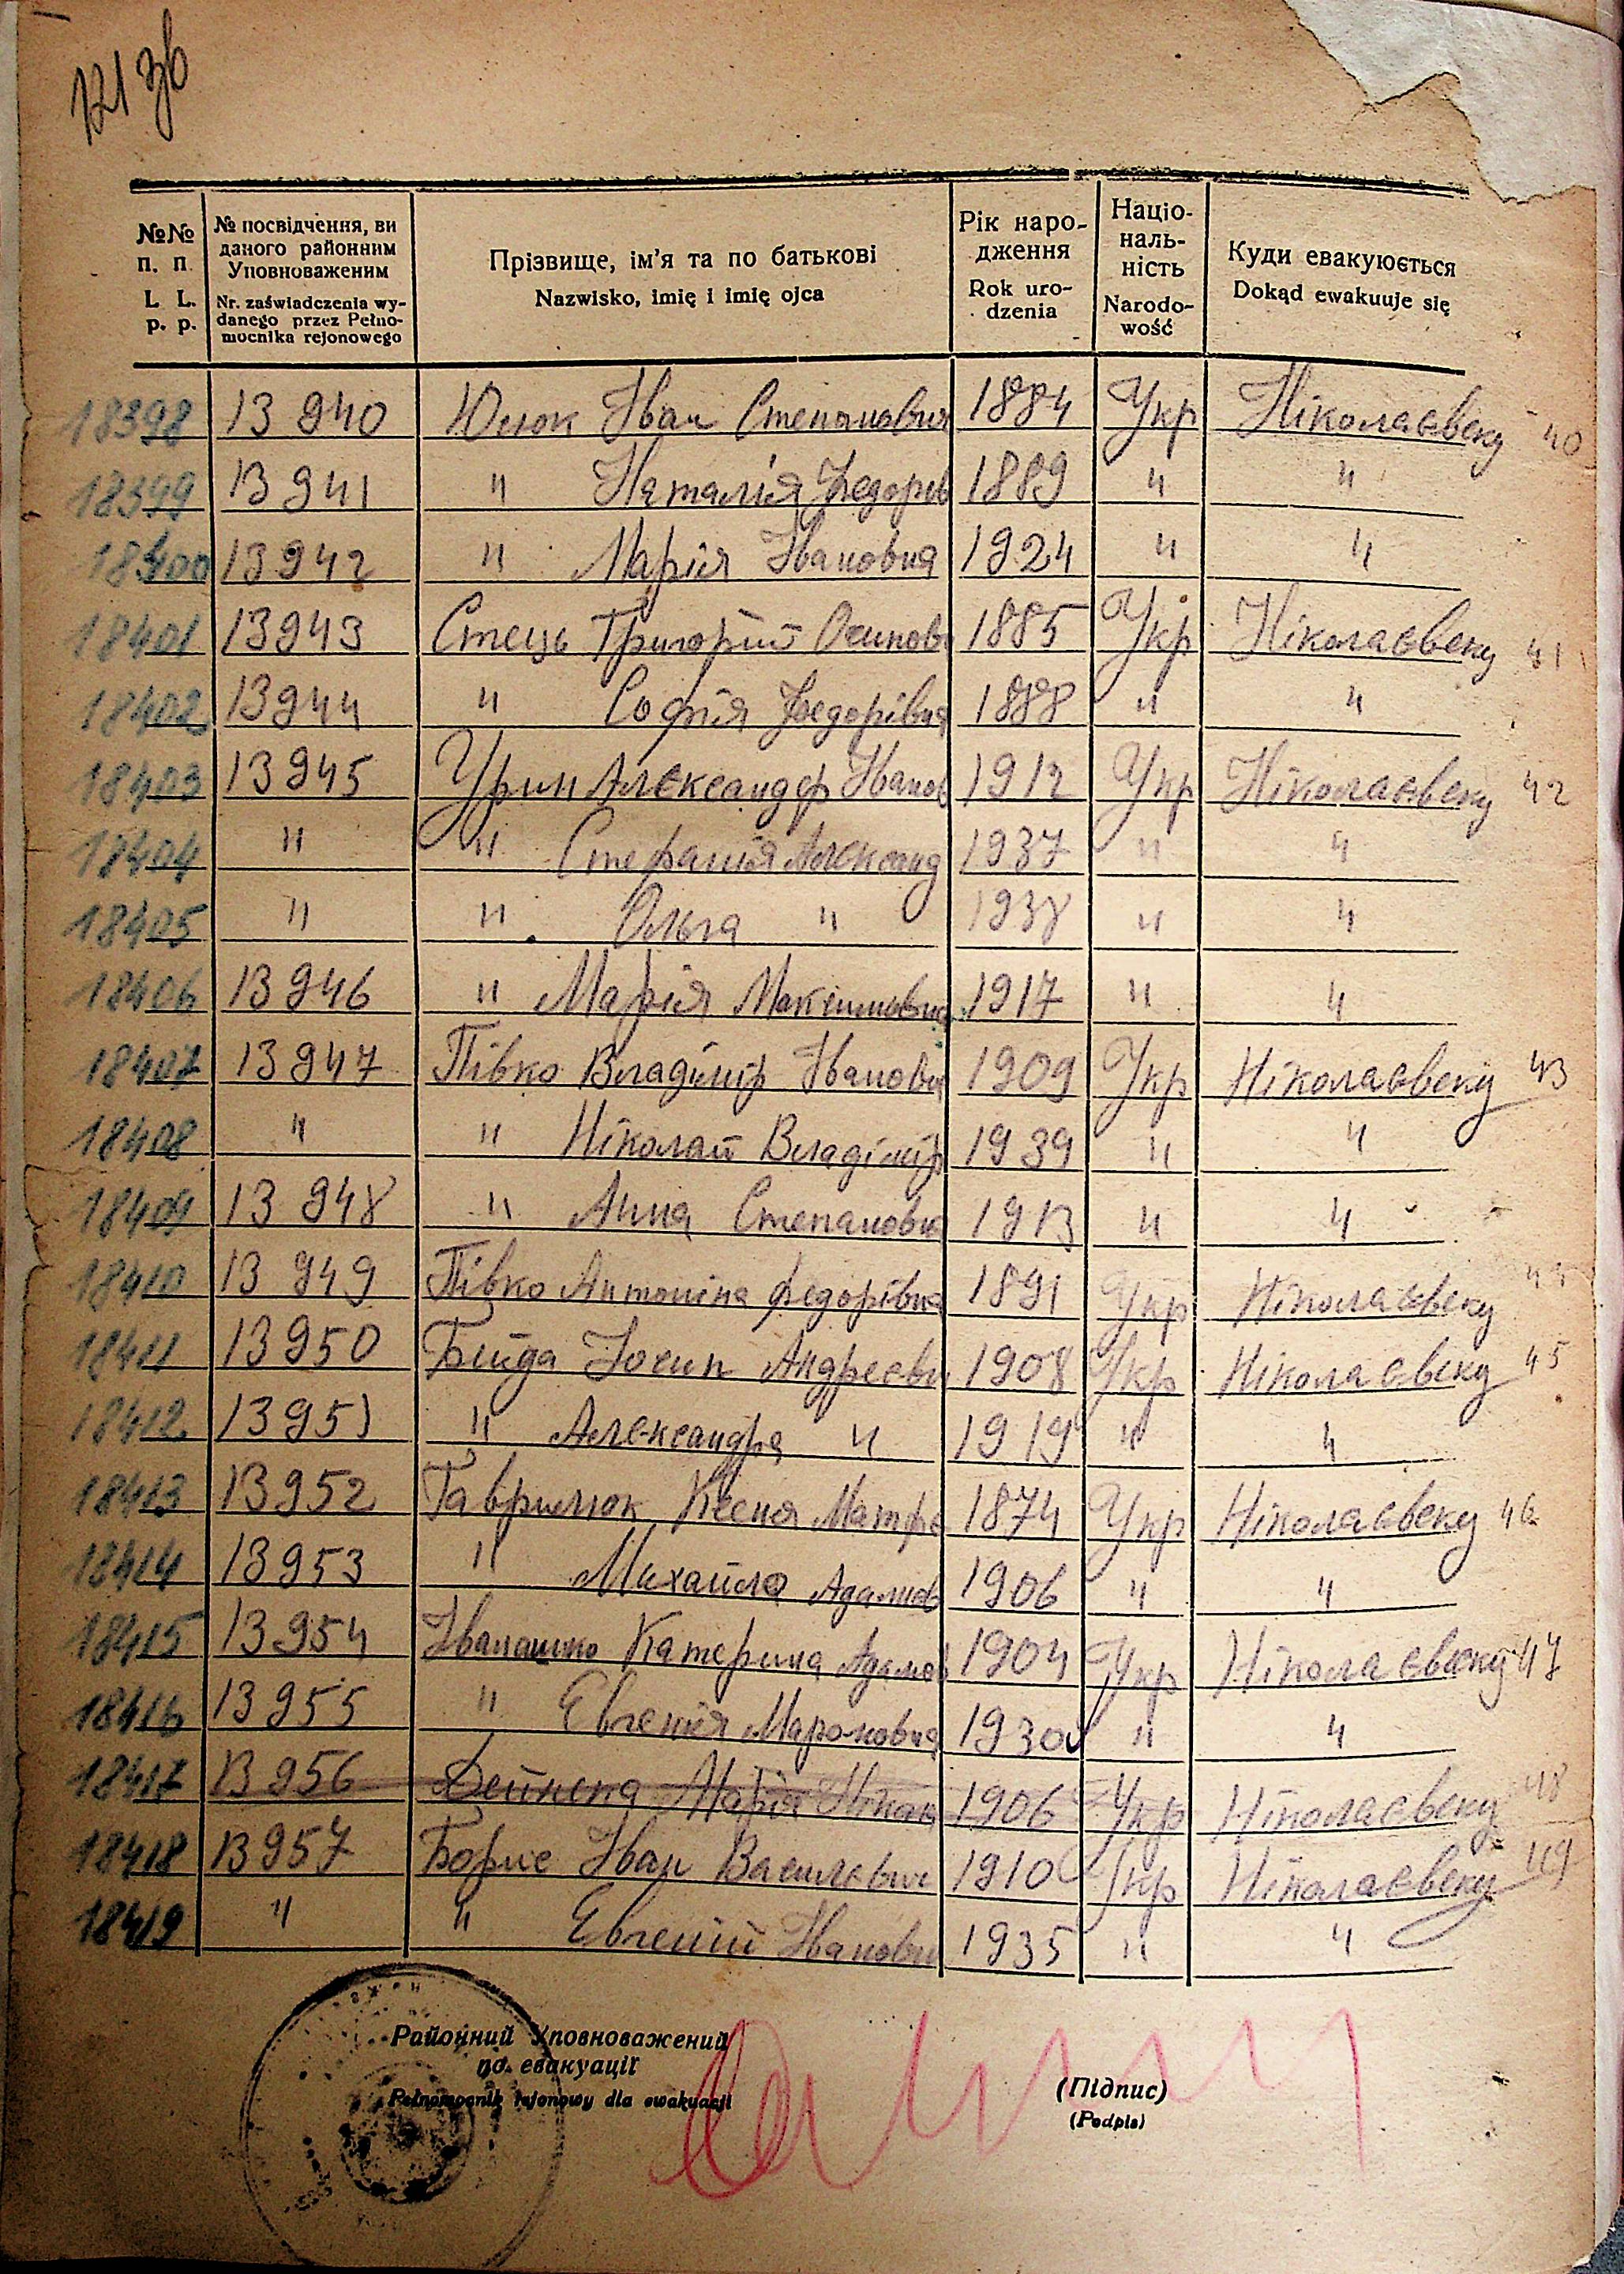 121 зв
№№ п. п. L. L. p. p.
№ посвідчення, ви даного районним Уповноваженим Nr. zaświadczenia wy- danego przez Pełno- mocnika rejonowego
Прізвище, ім'я та по батькові Nazwisko, imię i imię ojca
Рік наро- дження Rok uro- dzenia
Націо- наль- ність Narodo- wość
Куди евакуюється Dokąd ewakuuje się
18398 13 940 Юсюк Іван Степанович 1884 Укр Ніколаєвску 40
18399 13 941 " Наталія Федорів 1889 " "
18400 13942 " Марія Івановна 1924 " "
18401 13943 Стець Григорій Осипов 1885 Укр Ніколаєвску 41
18402 13944 " Софія Федорівна 1888 " "
18403 13945 Урин Александер Іванов 1912 Укр Ніколаєвску 42
18404 " " Стефанія Александ 1937 " "
18405 " " Ольга " 1938 " "
18406 13 946 " Марія Максимовна 1917 " "
18407 13 947 Півко Владімір Іванови 1909 Укр Ніколаєвску 43
18408 " " Ніколай Владімір 1939 " "
18409 13 948 " Анна Степановн 1913 " "
18410 13 949 Півко Антоніна Федорівна 1891 Укр Ніколаєвску
18411 13950 Бийда Йосип Андреєви 1908 Укр Ніколаєвску 45
18412 13951 " Александра " 1919 " "
18413 13952 Гаврилюк Ксеня Матфе 1874 Укр Ніколаєвску 46
18414 13953 " Михайло Адамов 1906 " "
18415 13954 Івалашко Катерина Адамов 1904 Укр Ніколаєвску 47
18416 13955 " Евгенія Марковна 1930 " "
18417 13956 Дейнека Марія 1906 Укр Ніколаєвску 48
18418 13957 Борис Іван Василєвич 1910 Укр Ніколаєвску 49
18419 " " Евгеній Іванови 1935 " "
Районний Уповноважений
по евакуації
Pełnomocnik rejonowy dla ewakuacji
(Підпис)
(Podpis)